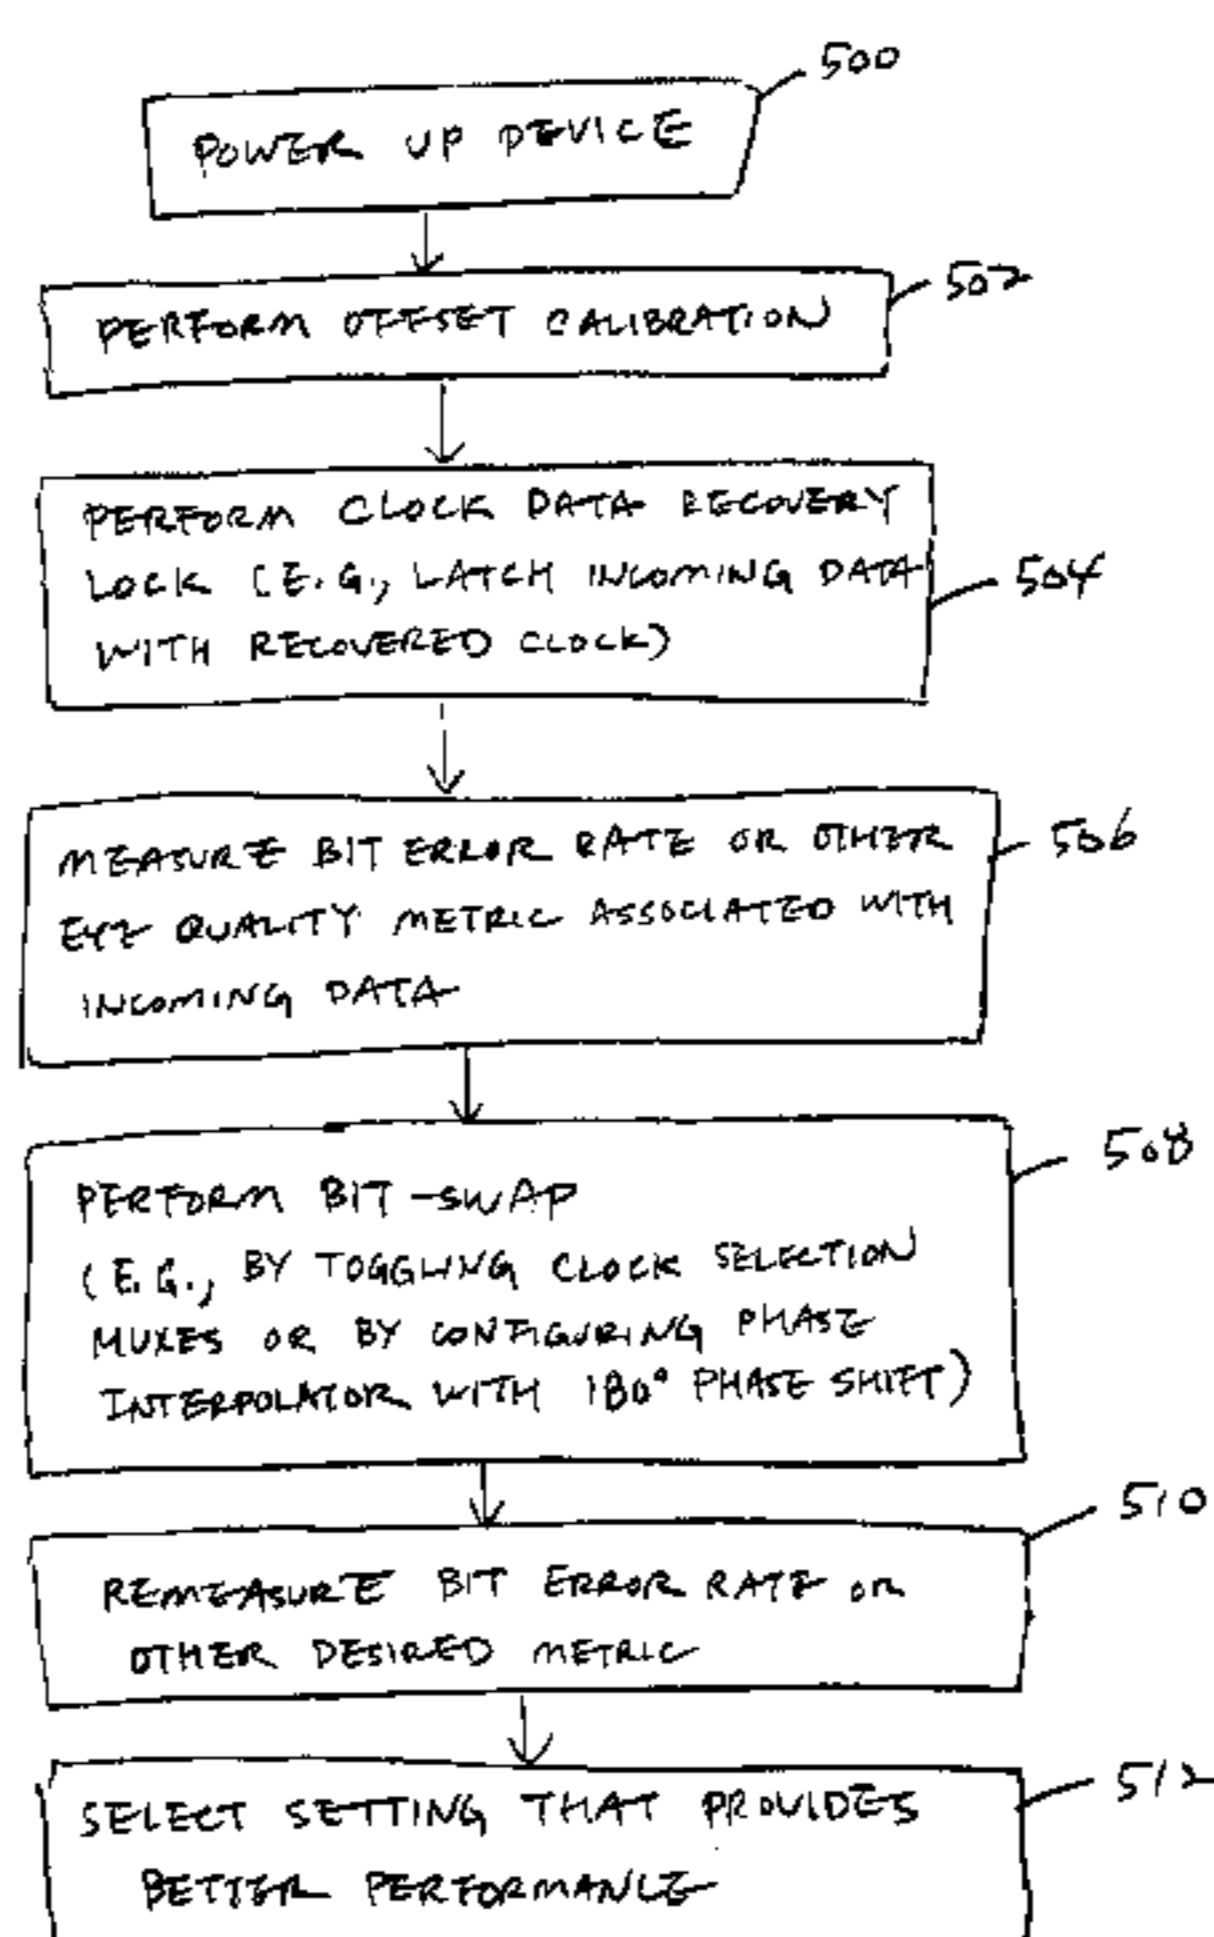 500
POWER UP DEVICE
502
PERFORM OFFSET CALIBRATION
PERFORM CLOCK DATA RECOVERY
LOCK (E.G., LATCH INCOMING DATA
504
WITH RECOVERED CLOCK)
MEASURE BIT ERROR RATE OR OTHER
506
EYE QUALITY METRIC ASSOCIATED WITH
INCOMING DATA
508
PERFORM BIT-SWAP
(E.G., BY TOGGLING CLOCK SELECTION
MUXES OR BY CONFIGURING PHASE
INTERPOLATOR WITH 180° PHASE SHIFT)
510
REMEASURE BIT ERROR RATE OR
OTHER DESIRED METRIC
512
SELECT SETTING THAT PROVIDES
BETTER PERFORMANCE